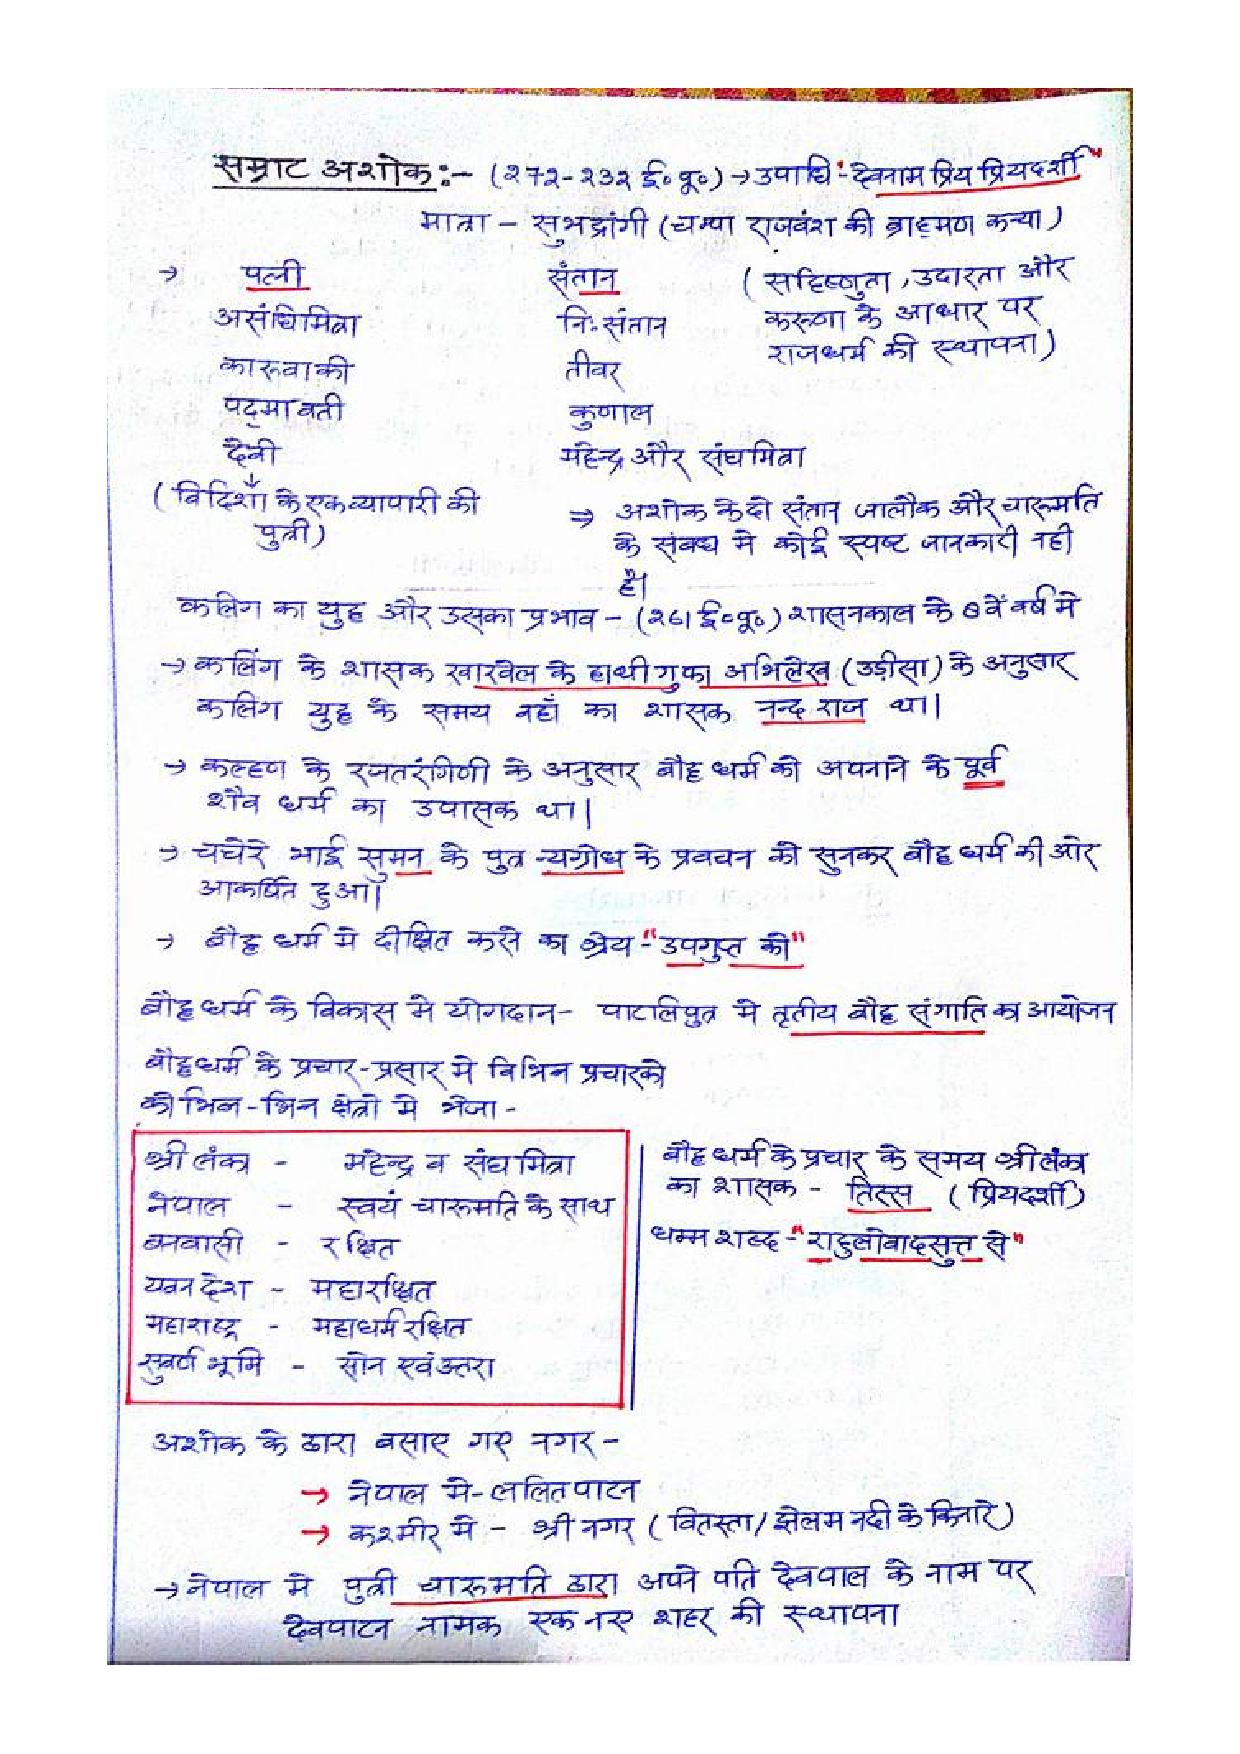 सम्राट अशोक:- (२७२-२३२ ई०पू०) → उपाधि - "देवनाम प्रिय प्रियदर्शी"
माता - सुभद्रांगी (चम्पा राजवंश की ब्राह्मण कन्या)
→ पत्नी संतान (सहिष्णुता, उदारता और
असंधिमित्रा निःसंतान करूणा के आधार पर
राजधर्म की स्थापना)
कारूवाकी तीवर
पद्मावती कुणाल
देवी महेन्द्र और संघमित्रा
(विदिशा के एक व्यापारी की
पुत्री)
⇒ अशोक के दो संतान जालौक और चारूमति
के संबध मे कोई स्पष्ट जानकारी नही
है।
कलिंग का युद्ध और उसका प्रभाव - (२६१ ई०पू०) शासनकाल के 8 वें वर्ष मे
→ कलिंग के शासक खारवेल के हाथी गुफा अभिलेख (उड़ीसा) के अनुसार
कलिंग युद्ध के समय वहाँ का शासक नन्द राज था।
→ कल्हण के रजतरंगिणी के अनुसार बौद्ध धर्म को अपनाने के पूर्व
शैव धर्म का उपासक था।
→ चचेरे भाई सुमन के पुत्र न्यग्रोध के प्रवचन को सुनकर बौद्ध धर्म की ओर
आकर्षित हुआ।
→ बौद्ध धर्म मे दीक्षित करने का श्रेय - "उपगुप्त को"
बौद्ध धर्म के विकास मे योगदान - पाटलिपुत्र मे तृतीय बौद्ध संगाति का आयोजन
बौद्ध धर्म के प्रचार-प्रसार मे विभिन प्रचारको
को भिन्न-भिन क्षेत्रो मे भेजा -
श्री लंका - महेन्द्र व संघमित्रा
नेपाल - स्वयं चारूमति के साथ
बनवासी - रक्षित
यवन देश - महारक्षित
महाराष्ट्र - महाधर्म रक्षित
सुवर्ण भूमि - सोन एवं उतरा
बौद्ध धर्म के प्रचार के समय श्री लंका
का शासक - तिस्स (प्रियदर्शी)
धम्म शब्द - "राहुलोवादसुत्त से"
अशोक के द्वारा बसाए गए नगर -
→ नेपाल मे - ललितपाटन
→ कश्मीर मे - श्री नगर (वितस्ता/झेलम नदी के किनारे)
→ नेपाल मे पुत्री चारूमति द्वारा अपने पति देवपाल के नाम पर
देवपाटन नामक एक नए शहर की स्थापना